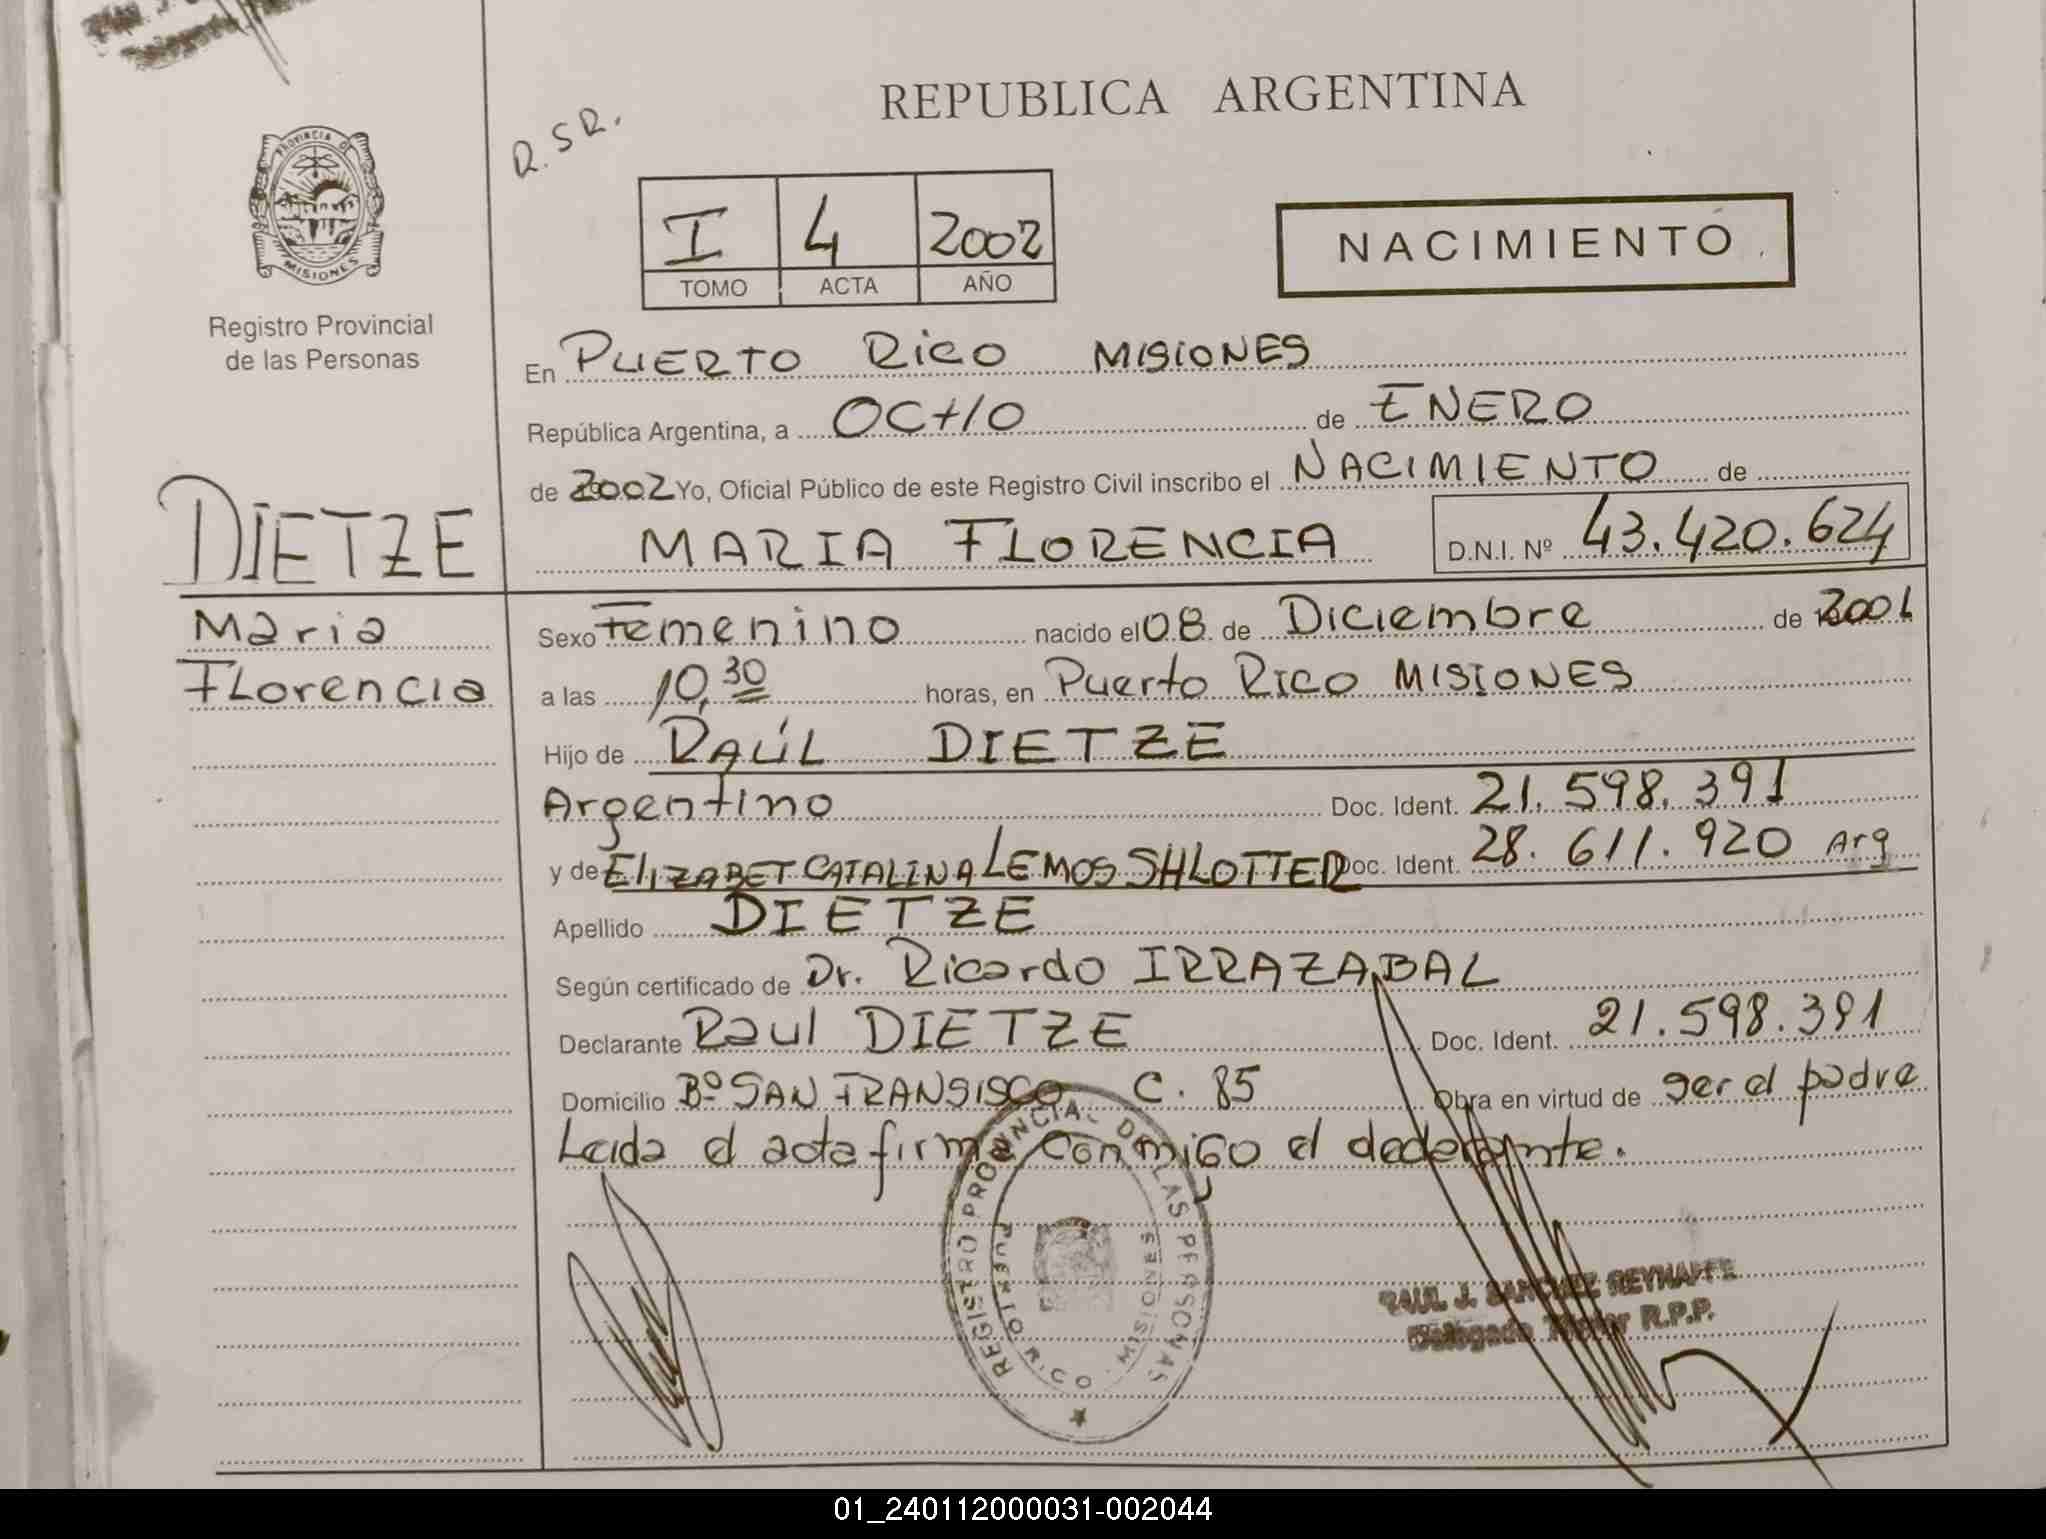 R.SR.
REPUBLICA ARGENTINA
PROVINCIA DE
MISIONES
Registro Provincial
de las Personas
I 4 2002
TOMO ACTA AÑO
NACIMIENTO
En PUERTO RICO MISIONES
República Argentina, a OCHO de ENERO
de 2002 Yo, Oficial Público de este Registro Civil inscribo el NACIMIENTO de
MARIA FLORENCIA D.N.I. Nº 43.420.624
DIETZE
Maria
FLorencia
Sexo Femenino nacido el 08 de Diciembre de 2001
a las 10,30 horas, en Puerto RICO MISIONES
Hijo de RAÚL DIETZE
Argentino Doc. Ident. 21.598.391
y de ELIZABET CATALINA LEMOS SHLOTTER Doc. Ident. 28.611.920 Arg
Apellido DIETZE
Según certificado de Dr. Ricardo IRRAZABAL
Declarante Raul DIETZE Doc. Ident. 21.598.391
Domicilio Bº SAN FRANSISCO C. 85 Obra en virtud de ser el padre
Leida el acta firma conmigo el declarante.
REGISTRO PROVINCIAL DE LAS PERSONAS
PUERTO RICO - MISIONES
RAUL J. SANCHEZ
Delegado R.P.P.
01_240112000031-002044